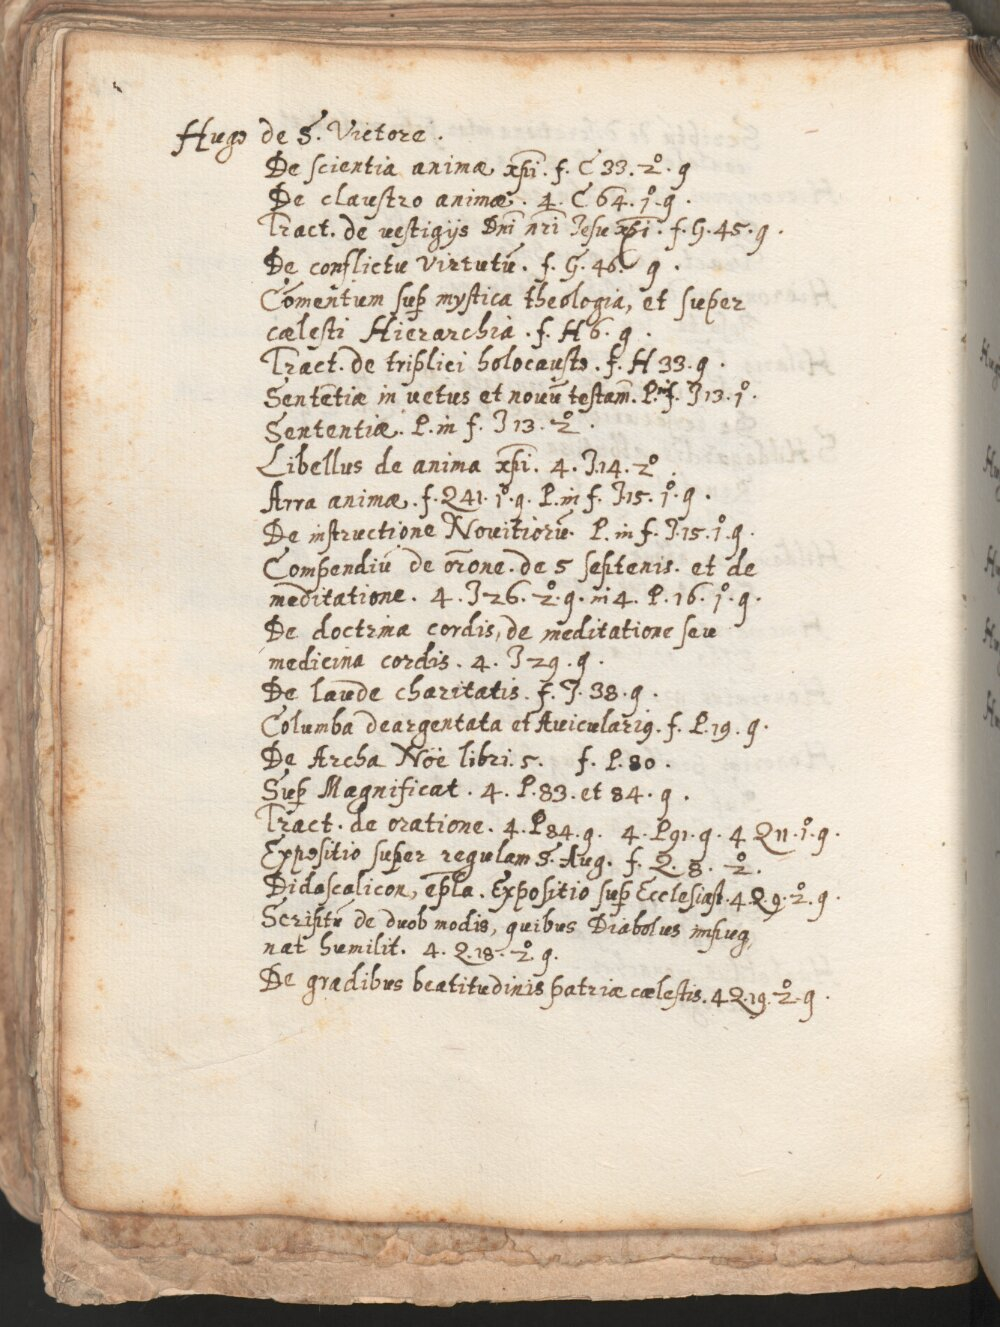 Hugo de S. Victore.
De scientia animæ xp̄i. f. C 33. 2.º g
De claustro animæ. 4. C 64. 1.º g.
Tract. de uestigijs Dñi nr̄i Jesu xp̄i. f. G. 45. g.
De conflictu virtutū. f. G. 46. g.
Cōmentum sup̱ mystica theologia, et super
cælesti Hierarchia. f. H 6. g.
Tract. de triplici holocausto. f. H 33. g.
Sentētiæ in uetus et nouū testam̄. P. in f. J 13. 1.º
Sententiæ. P. in f. J 13. 2.º
Libellus de anima xp̄i. 4. J. 14. 2.º
Arra animæ. f. Q 41. 1.º g. P. in f. J 15. 1.º g.
De instructione Nouitiorū. P. in f. J. 15. 1.º g.
Compendiū de or̄one. de 5 septenis. et de
meditatione. 4. J 26. 2.º g. in 4. P. 16. 1.º g.
De doctrina cordis, de meditatione seu
medicina cordis. 4. J 29. g.
De laude charitatis. f. J. 38. g.
Columba deargentata et Auicularig. f. P. 19. g.
De Archa Noë libri. 5. f. P. 80.
Sup̱ Magnificat. 4. P. 83. et 84. g.
Tract. de oratione. 4. P 84. g. 4. P 91. g. 4 Q 11. 1.º g.
Expositio super regulam S. Aug. f. Q. 8. 2.º
Didascalicon, ep̄la. Expositio sup̱ Ecclesiast. 4. Q. 9. 2.º g.
Scriptū de duob modis, quibus Diabolus impug
nat humilit. 4. Q. 18. 2.º g.
De gradibus beatitudinis patriæ cælestis. 4 Q. 19. 2.º g.